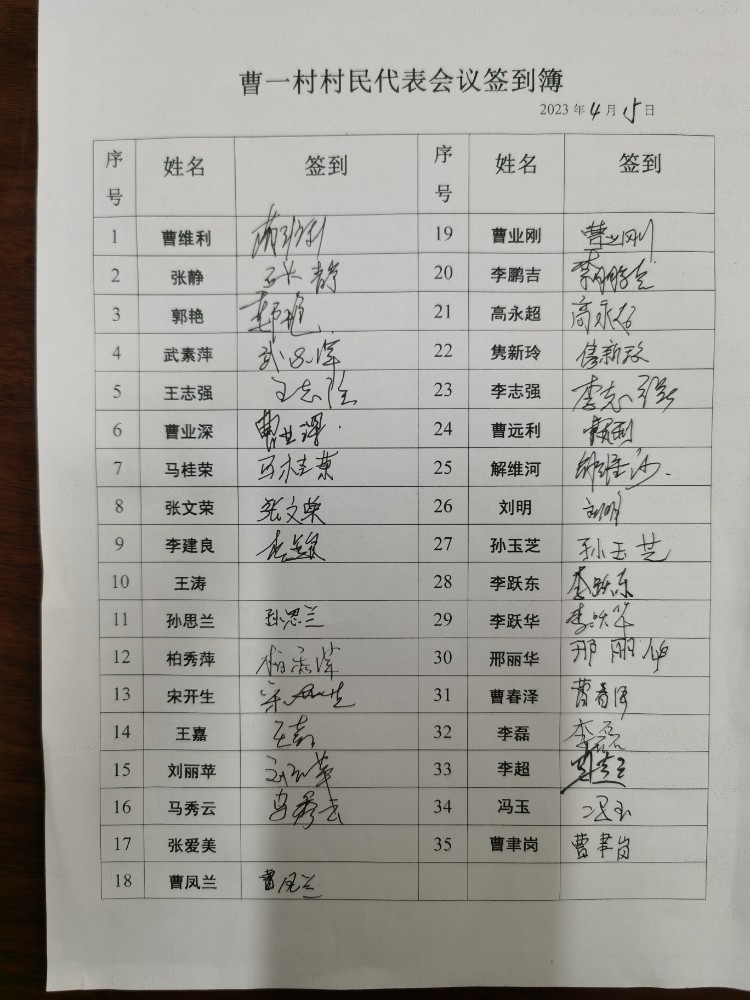 曹一村村民代表会议签到簿
2023年4月15日
序号 姓名 签到 序号 姓名 签到
1 曹维利 曹维利 19 曹业刚 曹业刚
2 张静 张静 20 李鹏吉 李鹏吉
3 郭艳 郭艳 21 高永超 高永超
4 武素萍 武思萍 22 隽新玲 隽新玲
5 王志强 王志强 23 李志强 李志强
6 曹业深 曹业深 24 曹远利
7 马桂荣 马桂荣 25 解维河 解维河
8 张文荣 张文荣 26 刘明 刘明
9 李建良 27 孙玉芝 孙玉芝
10 王涛 28 李跃东 李跃东
11 孙思兰 孙思兰 29 李跃华 李跃华
12 柏秀萍 柏秀萍 30 邢丽华 邢丽华
13 宋开生 宋开生 31 曹春泽 曹春泽
14 王嘉 王嘉 32 李磊 李磊
15 刘丽苹 刘丽苹 33 李超
16 马秀云 马秀云 34 冯玉 冯玉
17 张爱美 35 曹聿岗 曹聿岗
18 曹凤兰 曹凤兰